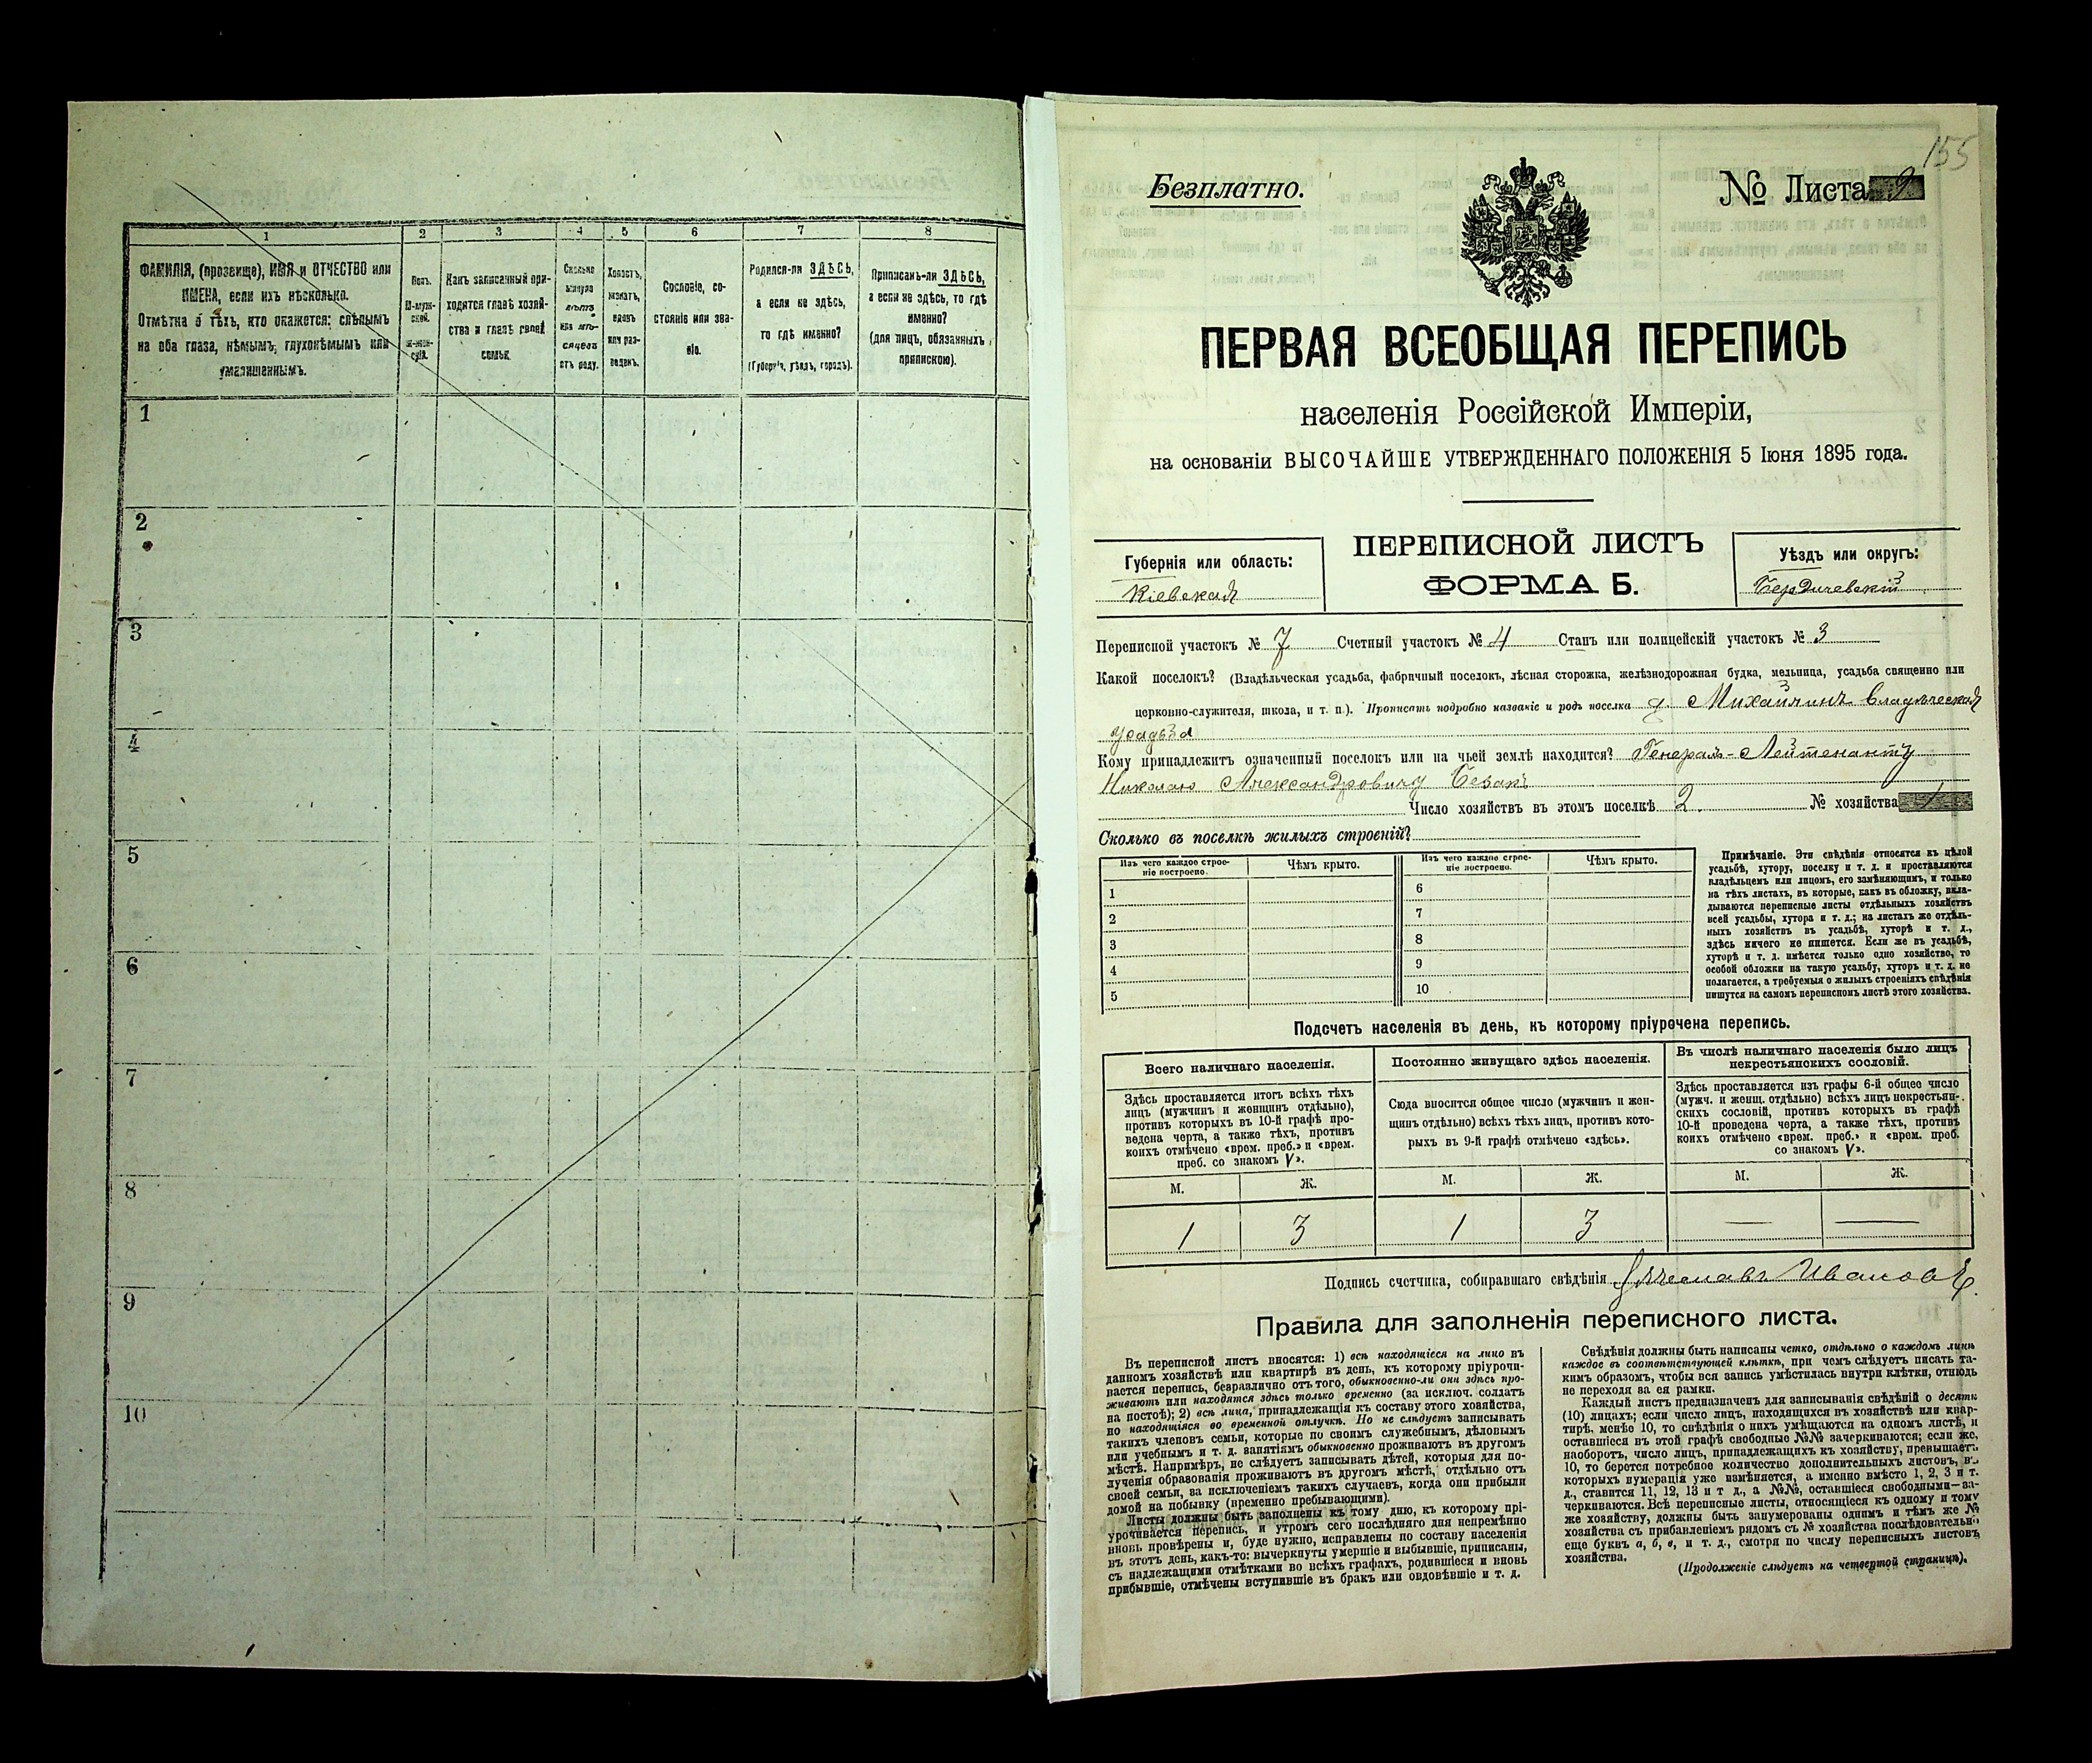 1
2
3
4
5
6
7
8
ФАМИЛІЯ, (прозвище), ИМЯ и ОТЧЕСТВО или
ИМЕНА, если ихъ нѣсколько.
Отмѣтка о тѣхъ, кто окажется: слѣпымъ
на оба глаза, нѣмымъ, глухонѣмымъ или
умалишеннымъ.
Полъ.
М-муж-
ской.
Ж-жен-
скій.
Какъ записанный при-
ходится главѣ хозяй-
ства и главѣ своей
семьи.
Сколько
минуло
лѣтъ
или мѣ-
сяцевъ
отъ роду.
Холостъ,
женатъ,
вдовъ
или раз-
веденъ.
Сословіе, со-
стояніе или зва-
ніе.
Родился-ли ЗДѢСЬ,
а если не здѣсь,
то гдѣ именно?
(Губернія, уѣздъ, городъ).
Приписанъ-ли ЗДѢСЬ,
а если не здѣсь, то гдѣ
именно?
(для лицъ, обязанныхъ
припискою).
1
2
3
4
5
6
7
8
9
10
155
Безплатно.
№ Листа 9.
ПЕРВАЯ ВСЕОБЩАЯ ПЕРЕПИСЬ
населенія Россійской Имперіи,
на основаніи ВЫСОЧАЙШЕ УТВЕРЖДЕННАГО ПОЛОЖЕНІЯ 5 Іюня 1895 года.
Губернія или область:
Кіевская
ПЕРЕПИСНОЙ ЛИСТЪ
ФОРМА Б.
Уѣздъ или округъ:
Бердичевскій
Переписной участокъ № 7 Счетный участокъ № 4 Станъ или полицейскій участокъ № 3
Какой поселокъ? (Владѣльческая усадьба, фабричный поселокъ, лѣсная сторожка, желѣзнодорожная будка, мельница, усадьба священно или
церковно-служителя, школа, и т. п.). Прописать подробно названіе и родъ поселка д. Михайлинъ владѣльческая
усадьба
Кому принадлежитъ означенный поселокъ или на чьей землѣ находится? Генералъ-Лейтенанту
Николаю Александровичу Безакъ
Число хозяйствъ въ этомъ поселкѣ 2. № хозяйства 1
Сколько въ поселкѣ жилыхъ строеній?
Изъ чего каждое строе-
ніе построено.
Чѣмъ крыто.
Изъ чего каждое строе-
ніе построено.
Чѣмъ крыто.
1
2
3
4
5
6
7
8
9
10
Примѣчаніе. Эти свѣдѣнія относятся къ цѣлой
усадьбѣ, хутору, поселку и т. д. и проставляются
владѣльцемъ или лицомъ, его замѣняющимъ, и только
на тѣхъ листахъ, въ которые, какъ въ обложку, вкла-
дываются переписные листы отдѣльныхъ хозяйствъ
всей усадьбы, хутора и т. д.; на листахъ же отдѣль-
ныхъ хозяйствъ въ усадьбѣ, хуторѣ и т. д.,
здѣсь ничего не пишется. Если же въ усадьбѣ,
хуторѣ и т. д. имѣется только одно хозяйство, то
особой обложки на такую усадьбу, хуторъ и т. д. не
полагается, а требуемыя о жилыхъ строеніяхъ свѣдѣнія
пишутся на самомъ переписномъ листѣ этого хозяйства.
Подсчетъ населенія въ день, къ которому пріурочена перепись.
Всего наличнаго населенія.
Постоянно живущаго здѣсь населенія.
Въ числѣ наличнаго населенія было лицъ
некрестьянскихъ сословій.
Здѣсь проставляется итогъ всѣхъ тѣхъ
лицъ (мужчинъ и женщинъ отдѣльно),
противъ которыхъ въ 10-й графѣ про-
ведена черта, а также тѣхъ, противъ
коихъ отмѣчено «врем. преб.» и «врем.
преб. со знакомъ V».
Сюда вносится общее число (мужчинъ и жен-
щинъ отдѣльно) всѣхъ тѣхъ лицъ, противъ кото-
рыхъ въ 9-й графѣ отмѣчено «здѣсь».
Здѣсь проставляется изъ графы 6-й общее число
(мужч. и женщ. отдѣльно) всѣхъ лицъ некрестьян-
скихъ сословій, противъ которыхъ въ графѣ
10-й проведена черта, а также тѣхъ, противъ
коихъ отмѣчено «врем. преб.» и «врем. преб.
со знакомъ V».
М. Ж. М. Ж. М. Ж.
1 3 1 3 — —
Подпись счетчика, собиравшаго свѣдѣнія Вячеславъ Ивановъ
Правила для заполненія переписного листа.
Въ переписной листъ вносятся: 1) всѣ находящіеся на лицо въ
данномъ хозяйствѣ или квартирѣ въ день, къ которому пріурочи-
вается перепись, безразлично отъ того, обыкновенно-ли они здѣсь про-
живаютъ или находятся здѣсь только временно (за исключ. солдатъ
на постоѣ); 2) всѣ лица, принадлежащія къ составу этого хозяйства,
но находящіяся во временной отлучкѣ. Но не слѣдуетъ записывать
такихъ членовъ семьи, которые по своимъ служебнымъ, дѣловымъ
или учебнымъ и т. д. занятіямъ обыкновенно проживаютъ въ другомъ
мѣстѣ. Напримѣръ, не слѣдуетъ записывать дѣтей, которыя для по-
лученія образованія проживаютъ въ другомъ мѣстѣ, отдѣльно отъ
своей семьи, за исключеніемъ такихъ случаевъ, когда они прибыли
домой на побывку (временно пребывающими).
Листы должны быть заполнены къ тому дню, къ которому прі-
урочивается перепись, и утромъ сего послѣдняго дня непремѣнно
вновь провѣрены и, буде нужно, исправлены по составу населенія
въ этотъ день, какъ-то: вычеркнуты умершіе и выбывшіе, приписаны,
съ надлежащими отмѣтками во всѣхъ графахъ, родившіеся и вновь
прибывшіе, отмѣчены вступившіе въ бракъ или овдовѣвшіе и т. д.
Свѣдѣнія должны быть написаны четко, отдѣльно о каждомъ лицѣ
каждое въ соотвѣтствующей клѣткѣ, при чемъ слѣдуетъ писать та-
кимъ образомъ, чтобы вся запись умѣстилась внутри клѣтки, отнюдь
не переходя за ея рамки.
Каждый листъ предназначенъ для записыванія свѣдѣній о десяти
(10) лицахъ; если число лицъ, находящихся въ хозяйствѣ или квар-
тирѣ, менѣе 10, то свѣдѣнія о нихъ умѣщаются на одномъ листѣ, и
оставшіеся въ этой графѣ свободные №№ зачеркиваются; если же,
наоборотъ, число лицъ, принадлежащихъ къ хозяйству, превышаетъ
10, то берется потребное количество дополнительныхъ листовъ, въ
которыхъ нумерація уже измѣняется, а именно вмѣсто 1, 2, 3 и т.
д., ставится 11, 12, 13 и т д., а №№, оставшіеся свободными—за-
черкиваются. Всѣ переписные листы, относящіеся къ одному и тому
же хозяйству, должны быть занумерованы однимъ и тѣмъ же №
хозяйства съ прибавленіемъ рядомъ съ № хозяйства послѣдовательно
еще буквъ а, б, в, и т. д., смотря по числу переписныхъ листовъ
хозяйства.
(Продолженіе слѣдуетъ на четвертой страницѣ).